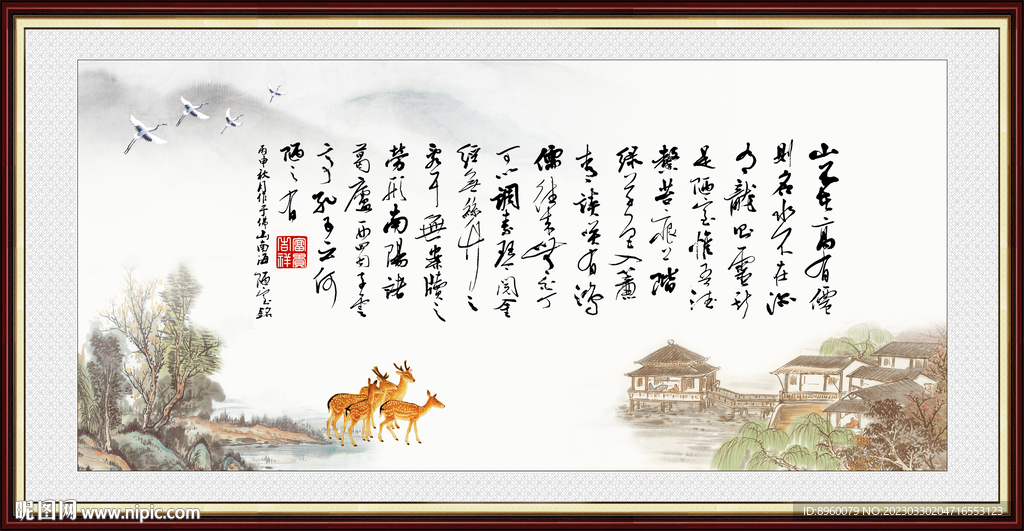 山不在高有僊
則名水不在深
有龍則靈斯
是陋室惟吾德
馨苔痕上階
綠草色入簾
青談笑有鴻
儒往來無白丁
可以調素琴閱金
經無絲竹之
亂耳無案牘之
勞形南陽諸
葛廬西蜀子雲
亭孔子云何
陋之有
丙申秋月作于佛山南海 陋室銘
富貴吉祥
昵图网 www.nipic.com
ID:8960079 NO:20230330204716553123